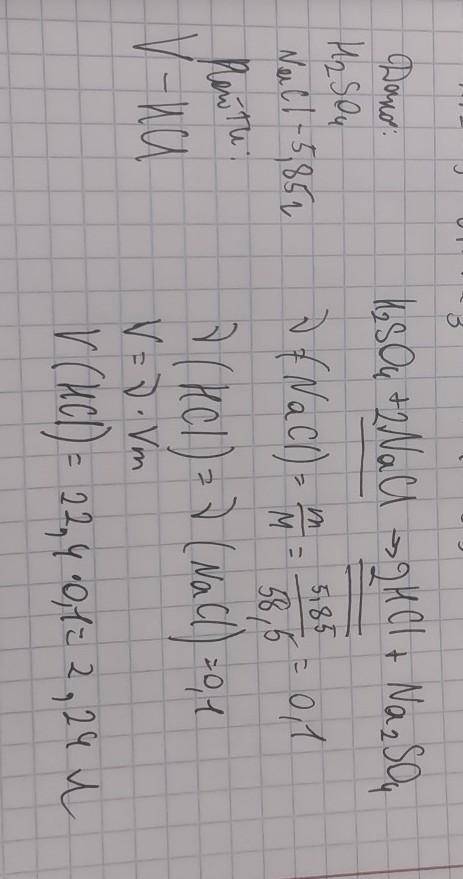 Дано:
H₂SO₄
NaCl - 5,85г
Найти:
V - HCl
H₂SO₄ + 2NaCl → 2HCl + Na₂SO₄
ν (NaCl) = m/M = 5,85/58,5 = 0,1
ν (HCl) = ν (NaCl) = 0,1
V = ν · Vm
V (HCl) = 22,4 · 0,1 = 2,24 л